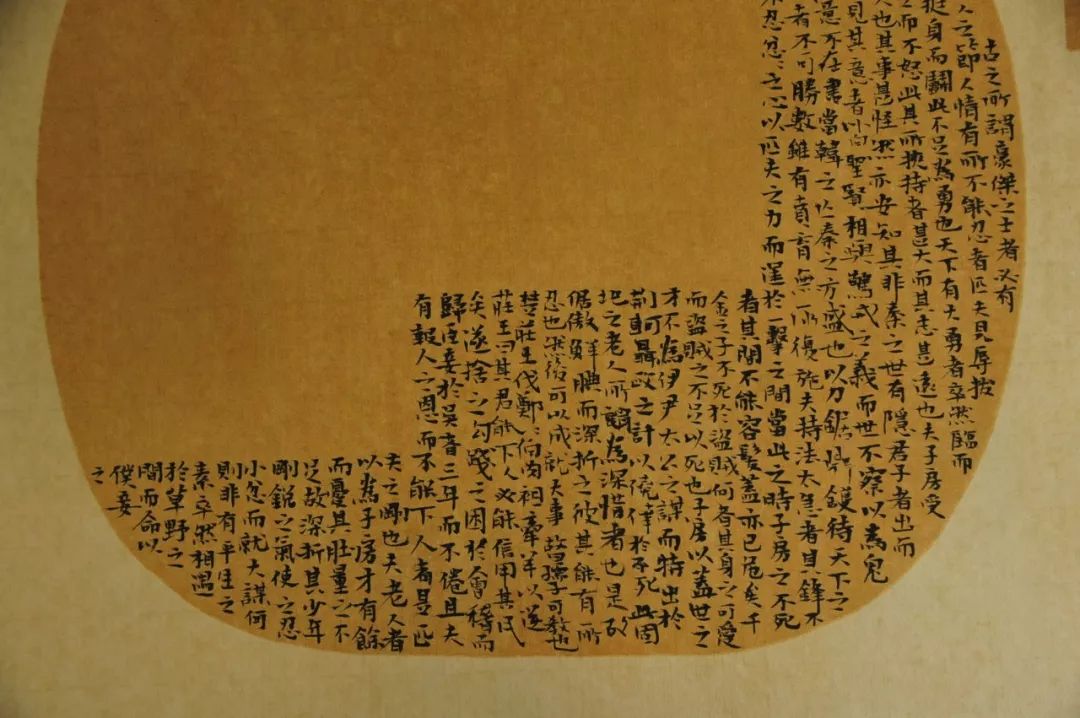 古之所謂豪傑之士者必有
人之節人情有所不能忍者匹夫見辱拔
挺身而鬭此不足為勇也天下有大勇者卒然臨而
之而不怒此其所挾持者甚大而其志甚遠也夫子房受
也其事甚怪然亦安知其非秦之世有隱君子者出而
見其意者皆聖賢相與警戒之義而世不察以為鬼
意不在書當韓之亡秦之方盛也以刀鋸鼎鑊待天下之
者不可勝數雖有賁育無所復施夫持法太急者其鋒不
不忍忿忿之心以匹夫之力而逞於一擊之間當此之時子房之不死
者其間不能容髮蓋亦已危矣千
金之子不死於盜賊何者其身之可愛
而盜賊之不足以死也子房以蓋世之
才不為伊尹太公之謀而特出於
荊軻聶政之計以僥倖於不死此固
圯之老人所謂為深惜者也是故
倨傲鮮腆而深折之彼其能有所
忍也然後可以成就大事故曰孺子可教也
楚莊王伐鄭鄭伯肉袒牽羊以逆
莊王曰其君能下人必能信用其民
矣遂捨之勾踐之困於會稽而
歸臣妾於吳者三年而不倦且夫
有報人之恩而不能下人者是匹
夫之剛也夫老人者
以為子房才有餘
而憂其肚量之不
足故深折其少年
剛銳之氣使之忍
小忿而就大謀何
則非有平生之
素卒然相遇
於草野之
間而命以
僕妾
之